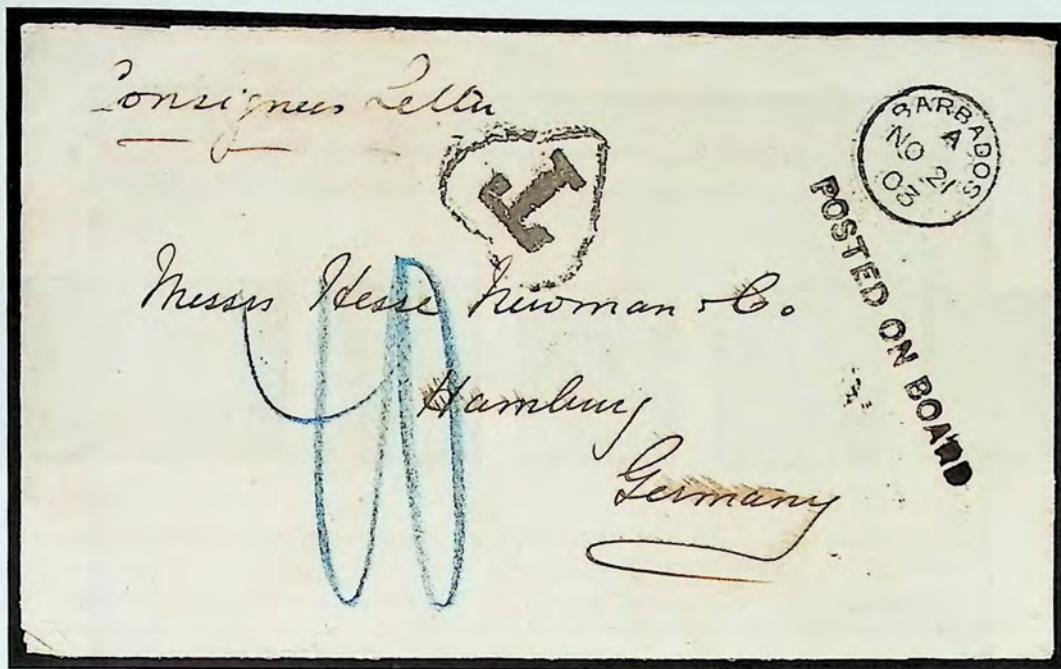 Consignees Letter
T
BARBADOS
A
NO 21
03
POSTED ON BOARD
Messrs Hesse Newman & Co.
Hamburg
Germany